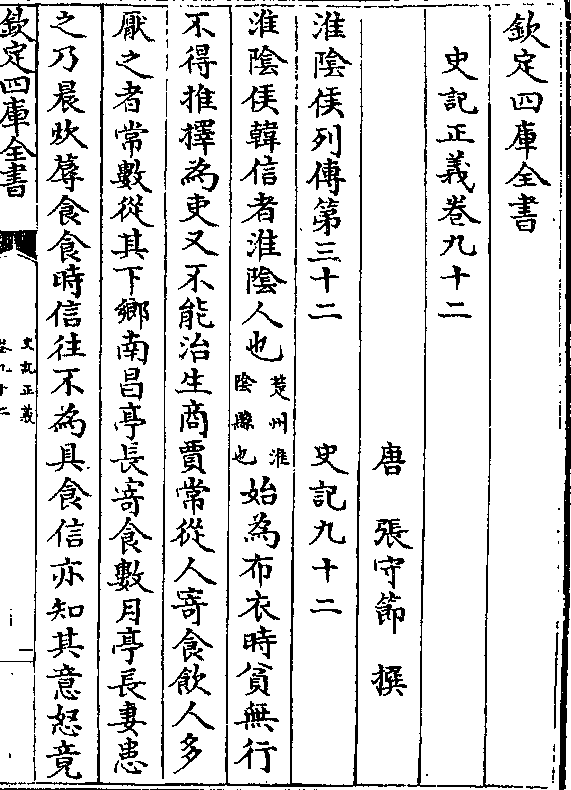 欽定四庫全書
史記正義卷九十二
唐 張守節 撰
淮陰侯列傳第三十二 史記九十二
淮陰侯韓信者淮陰人也楚州淮陰縣也始為布衣時貧無行
不得推擇為吏又不能治生商賈常從人寄食飲人多
厭之者常數從其下鄉南昌亭長寄食數月亭長妻患
之乃晨炊蓐食食時信往不為具食信亦知其意怒竟
欽定四庫全書
史記正義
卷九十二
一